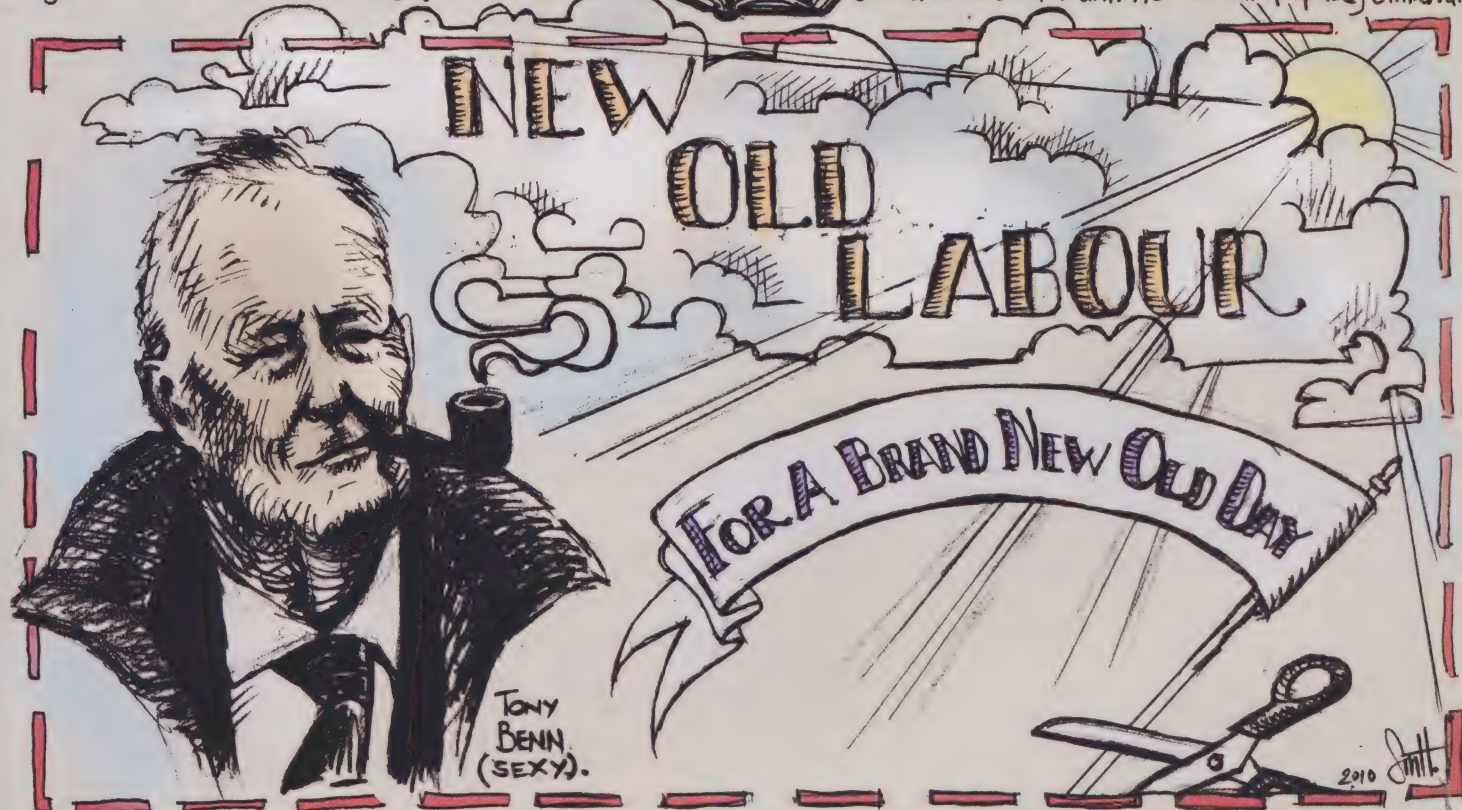 NEW
OLD
LABOUR
FOR A BRAND NEW OLD DAY
TONY
BENN
(SEXY).
2010 Smith.